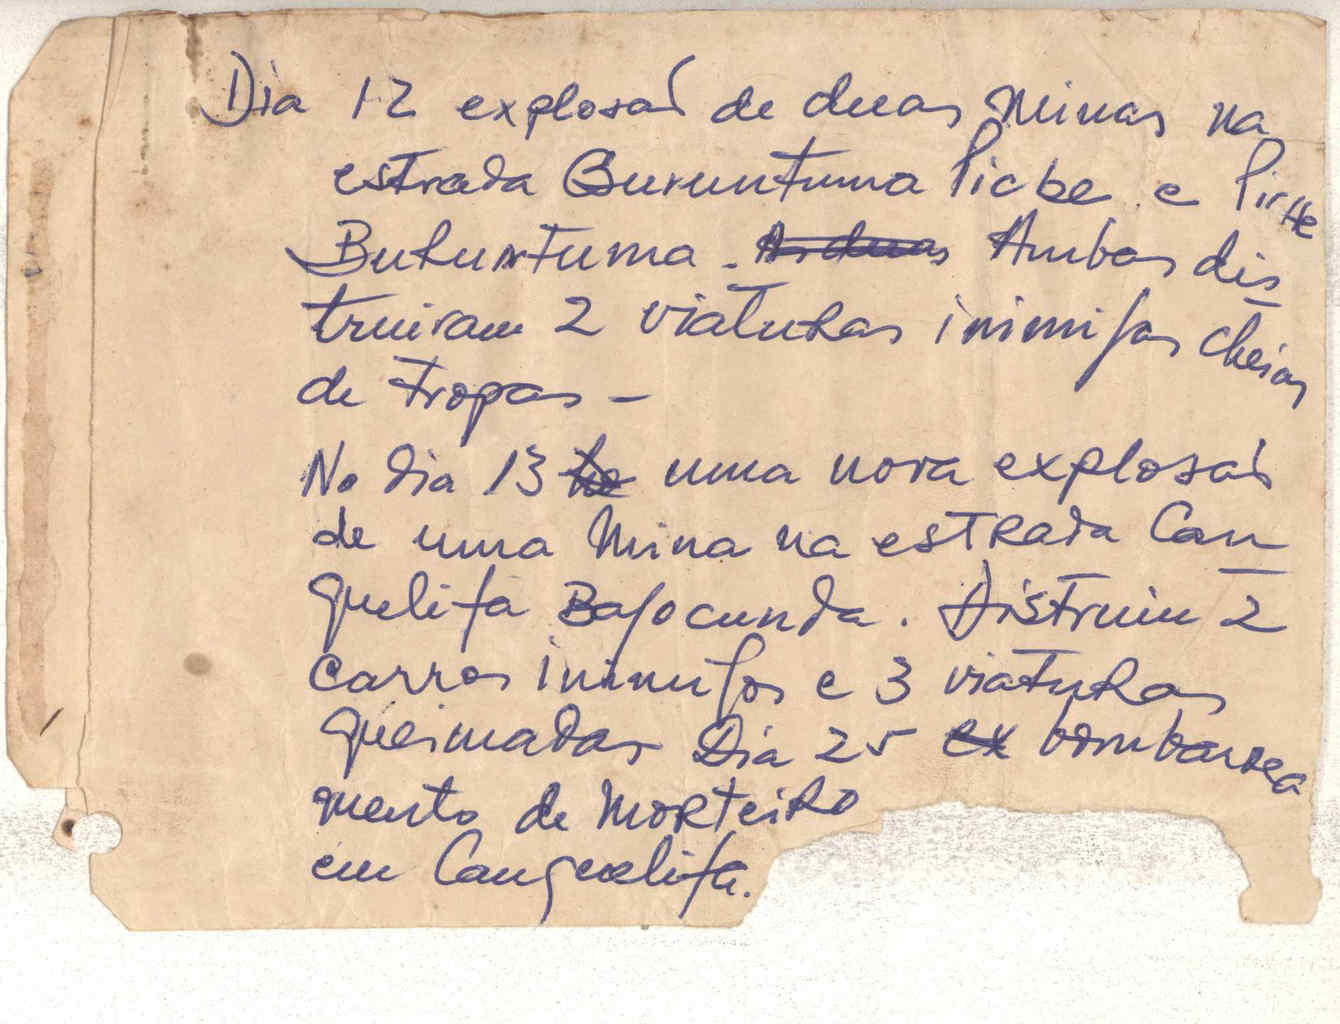 Dia 12 explosaõ de duas minas na
estrada Buruntuma Picbe e Pirtte
Buruntuma. As duas Ambas dis_
truiram 2 viaturas inimigas cheias
de tropas -
No dia 13 uma nova explosaõ
de uma mina na estrada Can_
quelifa Bajocunda. Distruiu 2
carros inimigos e 3 viaturas
queimadas Dia 25 ex bombardea
mento de morteiro
em Canquelifa.